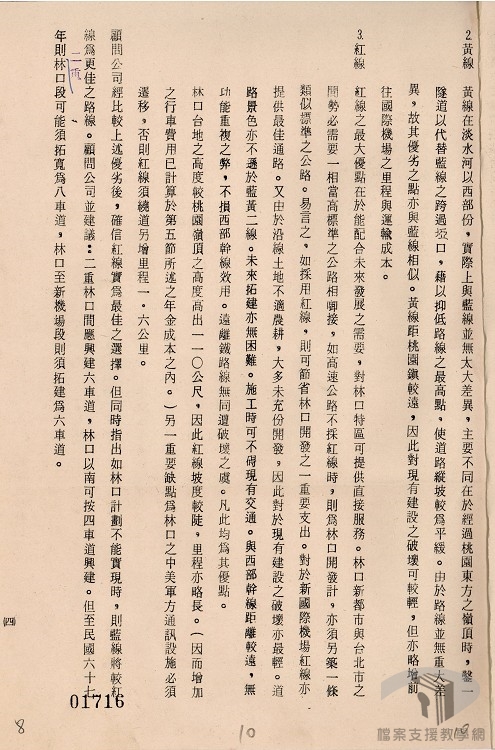 2.黃線　黃線在淡水河以西部份，實際上與藍線並無太大差異，主要不同在於經過桃園東方之嶺頂時，鑿一
隧道以代替藍線之跨過埡口，藉以抑低路線之最高點，使道路縱坡較為平緩。由於路線並無重大差
異，故其優劣之點亦與藍線相似。黃線距桃園鎮較遠，因此對現有建設之破壞可較輕，但亦略增前
往國際機場之里程與運輸成本。
3.紅線　紅線之最大優點在於能配合未來發展之需要，對林口特區可提供直接服務。林口新都市與台北市之
間勢必需要一相當高標準之公路相聯接，如高速公路不採紅線時，則為林口開發計，亦須另築一條
類似標準之公路。易言之，如採用紅線，則可節省林口開發之一重要支出。對於新國際機場紅線亦
提供最佳通路。又由於沿線土地不適農耕，大多未充份開發，因此對於現有建設之破壞亦最輕。道
路景色亦不遜於藍黃二線。未來拓建亦無困難。施工時可不碍現有交通。與西部幹線距離較遠，無
功能重複之弊，不損西部幹線效用。遠離鐵路線無同遭破壞之虞。凡此均為其優點。
林口台地之高度較桃園嶺頂之高度高出一一〇公尺，因此紅線坡度較陡，里程亦略長。（因而增加
之行車費用已計算於第五節所述之年金成本之內。）另一重要缺點為林口之中美軍方通訊設施必須
遷移，否則紅線須繞道另增里程一．六公里。
顧問公司經比較上述優劣後，確信紅線實為最佳之選擇。但同時指出如林口計劃不能實現時，則藍線將較紅
線為更佳之路線。顧問公司並建議：二重林口間應興建六車道，林口以南可按四車道興建。但至民國六十七
年則林口段可能須拓寬為八車道，林口至新機場段則須拓建為六車道。
二重
㈣
01716
8
10
10
檔案支援教學網